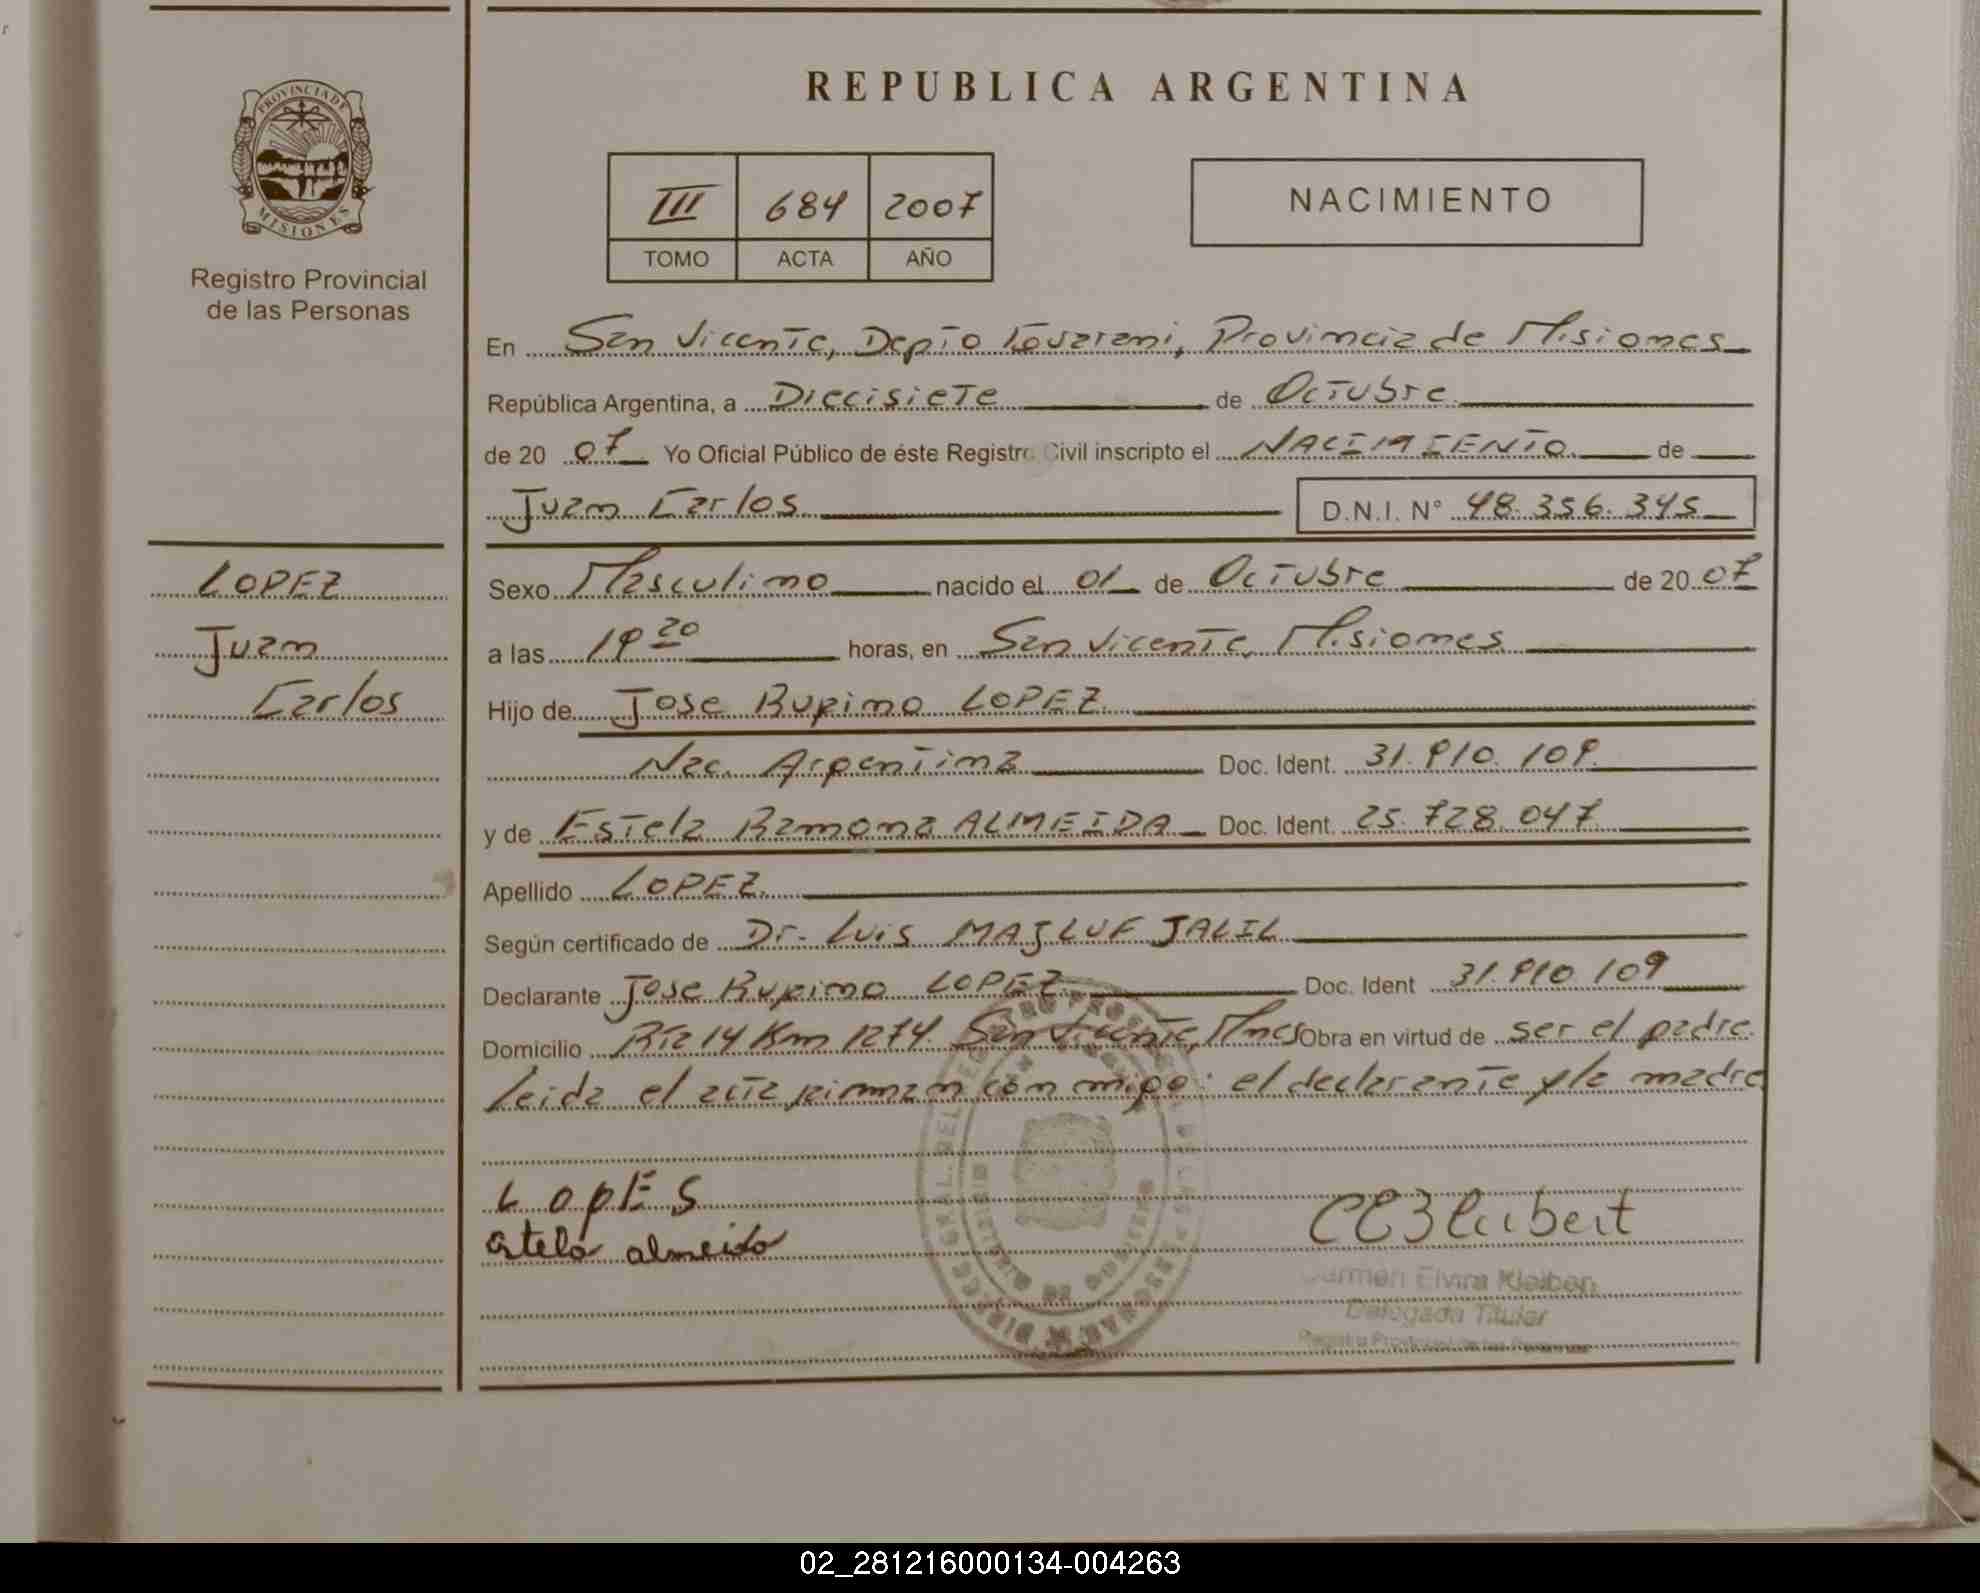 REPUBLICA ARGENTINA
PROVINCIA DE
MISIONES
Registro Provincial
de las Personas
III 684 2007
TOMO ACTA AÑO
NACIMIENTO
En San Vicente, Depto Guarani, Provincia de Misiones
República Argentina, a Diecisiete de Octubre
de 20 07 Yo Oficial Público de éste Registro Civil inscripto el NACIMIENTO de
Juan Carlos D.N.I. N° 48.356.345
LOPEZ
Juan
Carlos
Sexo Masculino nacido el 01 de Octubre de 20 07
a las 19 20 horas, en San Vicente, Misiones
Hijo de Jose Rufino LOPEZ
Nac. Argentina Doc. Ident. 31.910.109
y de Estela Ramona ALMEIDA Doc. Ident. 25.728.047
Apellido LOPEZ
Según certificado de Dr. Luis MAJLUF JALIL
Declarante Jose Rufino LOPEZ Doc. Ident 31.910.109
Domicilio Rta 14 Km 1274. San Vicente, Mnes Obra en virtud de ser el padre.
Leida el acta firman con migo: el declarante y la madre
LopES
estela almeida
Carmen Elvira
Delegada Titular
Registro Provincial de las Personas
02_281216000134-004263